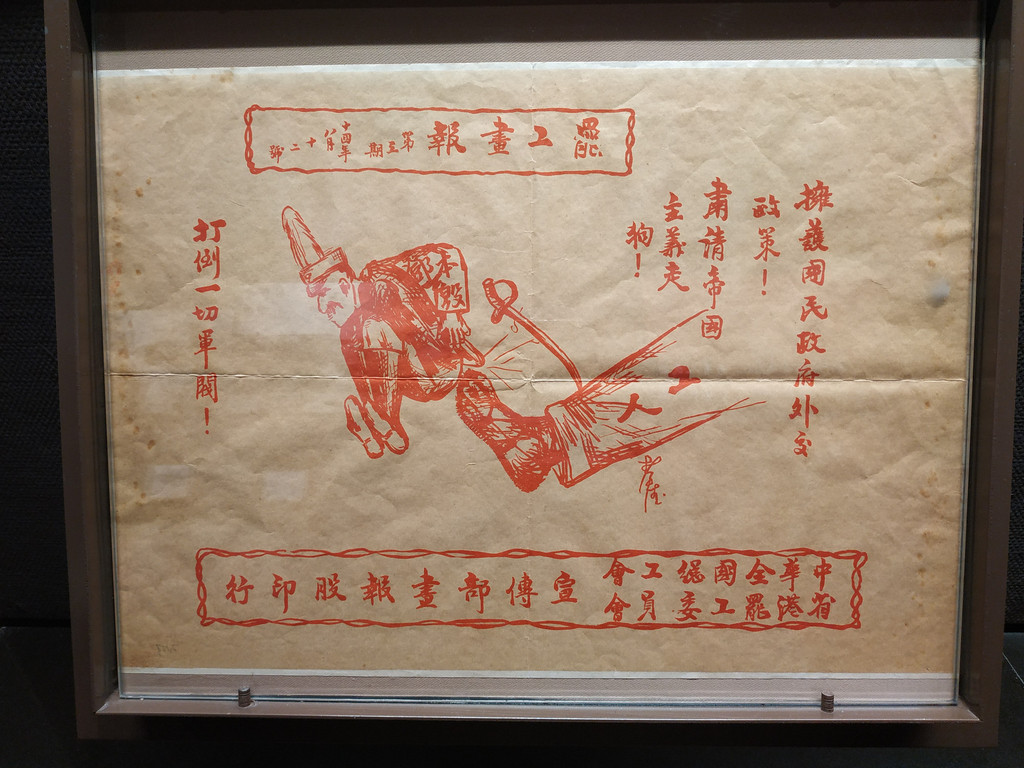 罷工畫報 第三期 十四年八月十二號
擁護國民政府外交
政策！
肅清帝國
主義走
狗！
工人
打倒一切軍閥！
中華全國總工會
省港罷工委員會
宣傳部畫報股印行